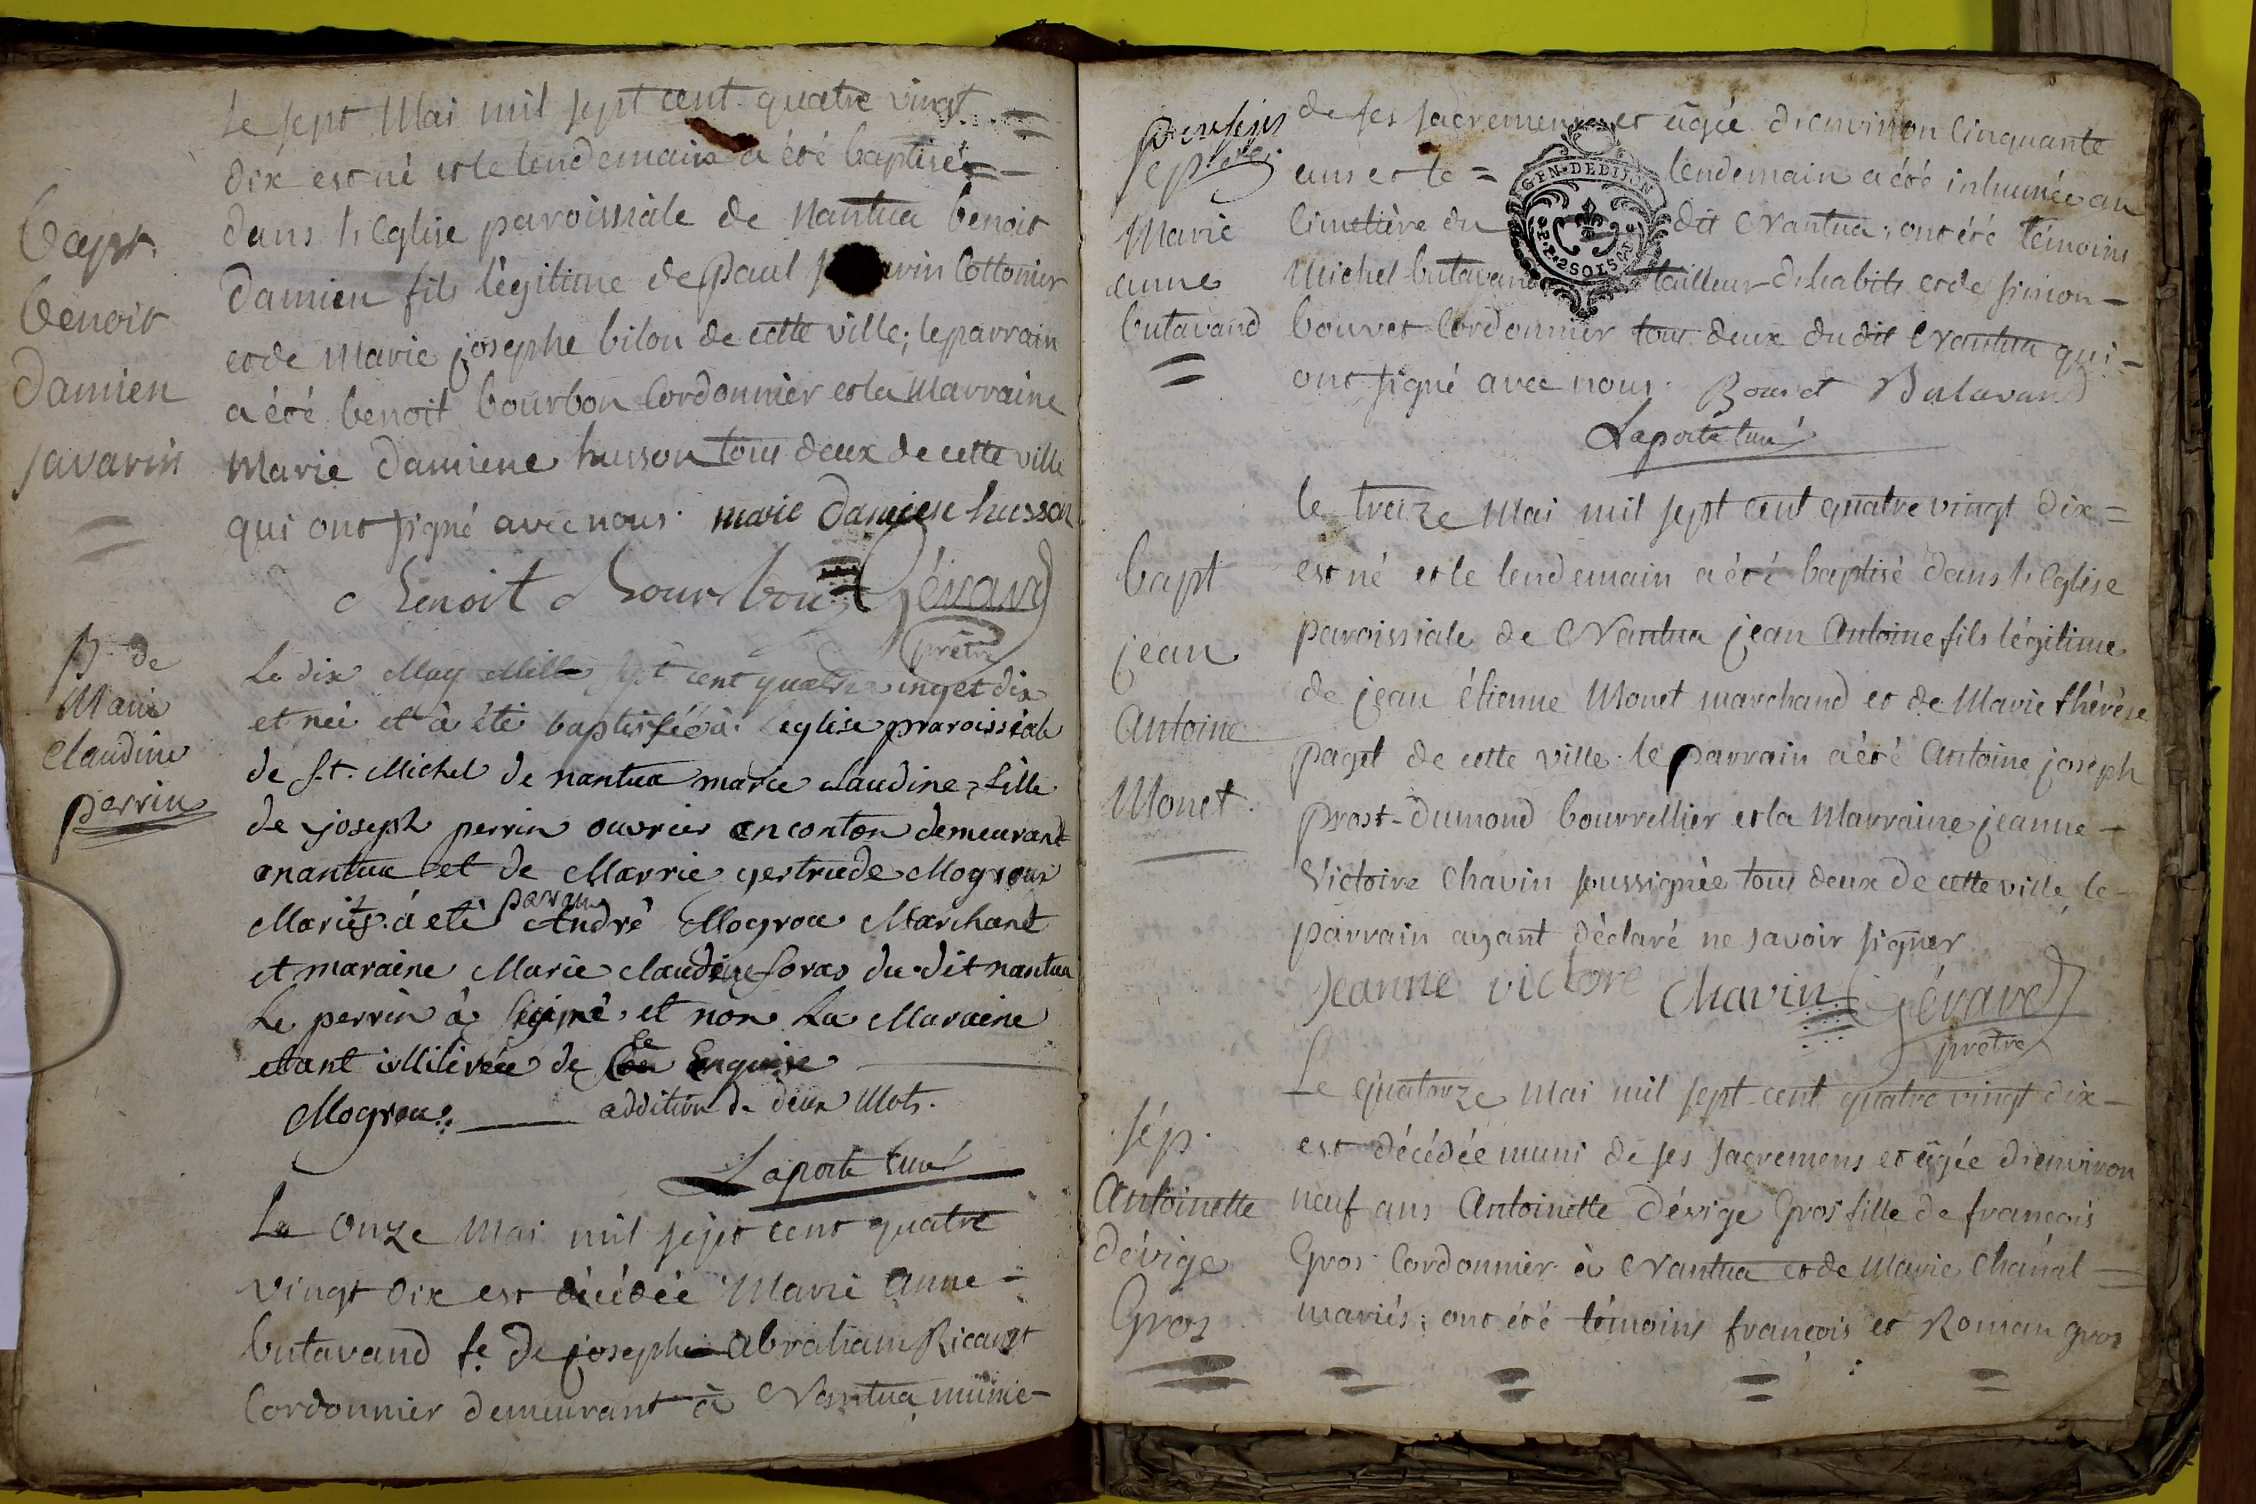 Bapt.
benoit
Damien
savarin
Le sept Mai mil sept cent quatre vingt
dix est né et le lendemain a été baptisé
dans l'Eglise paroissiale de Nantua benoit
Damien fils légitime de paul arin Cottonier
et de Marie josephe bilon de cette ville; le parrain
a été benoit bourbon Cordonnier et la Marraine
Marie Damiene husson tous deux de cette ville
qui ont signé avec nous. marie Damiene husson
benoit bourbon Gérard
prêtre
B. de
Marie
Claudine
perrin
Le dix May Mille Sept cent quatre vinget dix
et neé et à été baptisséé à eglise praroissiale
de St. Michel de nantua marie claudine, fille
de joseph perrin ouvrier en conton demeurant
anantua et de Marrie gertruede Mogroux
Mariés. à eté parrain André Mogrou Marchant
et maraine Marie claudine foras du dit nantua
Le perrin à signé, et non La Maraine
etant illiterée de ce Enquise
Mogrou. addition de deux Mots.
Laporte curé
Le onze Mai mil sept cent quatre
vingt dix est décédée Marie Anne
butavand fe. De joseph Abraham Ricaugt
Cordonnier demeurant à Nantua munie
sep
Marie
anne
butavand
de ses sacremens et âgée d'environ Cinquante
ans et le = lendemain a été inhumée au
Cimetière du dit Nantua; ont été témoins
Michel butavand tailleur d'habits et de simon
bouvet Cordonnier tous deux du dit Nantua qui
ont signé avec nous. Bouvet Butavand
Laporte curé
GEN. DE DIJON
2 SOLS
bapt
jean
Antoine
Monet.
le treize Mai mil sept cent quatre vingt dix =
est né et le lendemain a été baptisé dans l'Eglise
paroissiale de Nantua jean Antoine fils légitime
de jean étienne Monet marchand et de Marie thérèse
paget de cette ville. le parrain a été Antoine joseph
prost-dumond bourrellier et la Marraine jeanne
Victoire Chavin soussignée tous deux de cette ville, le
parrain ayant déclaré ne savoir signer
jeanne victore Chavin Gérard
prêtre
sép.
Antoinette
dévige
Gros
Le quatorze Mai mil sept cent quatre vingt dix
est décédée muni de ses sacremens et âgée d'environ
neuf ans Antoinette dévige Gros fille de françois
Gros Cordonnier à Nantua et de Marie Chanal
mariés; ont été témoins françois et Roman gros